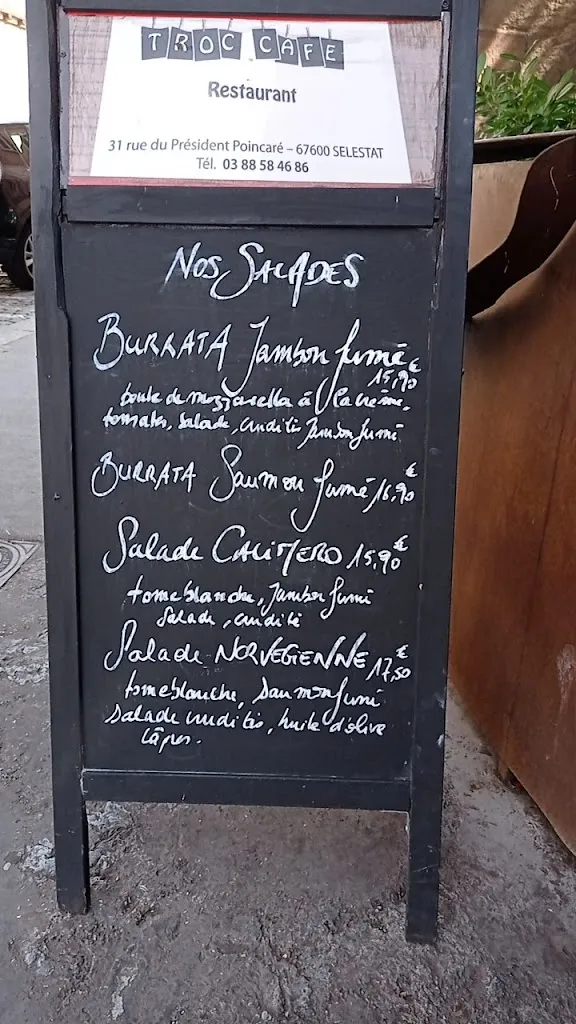 TROC CAFE
Restaurant
31 rue du Président Poincaré – 67600 SELESTAT
Tél. 03 88 58 46 86
Nos SALADES
BURRATA Jambon fumé
15,90€
boule de mozzarella à la crème,
tomates, salade, crudités Jambon fumé
BURRATA Saumon fumé 16,90€
Salade CALIMERO 15,90€
tome blanche, Jambon fumé
salade, crudité
Salade NORVEGIENNE 17,50€
tome blanche, saumon fumé
salade crudités, huile d'olive
câpres.